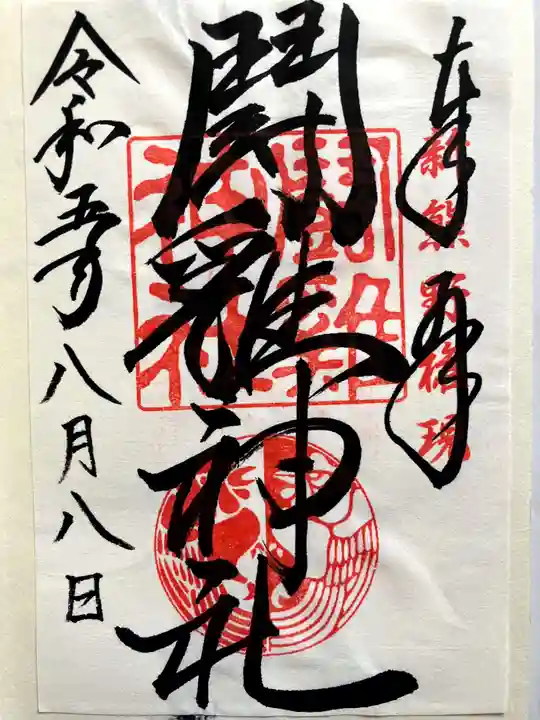 奉拝
新熊野権現
闘雞神社
闘雞神社
令和五年八月八日